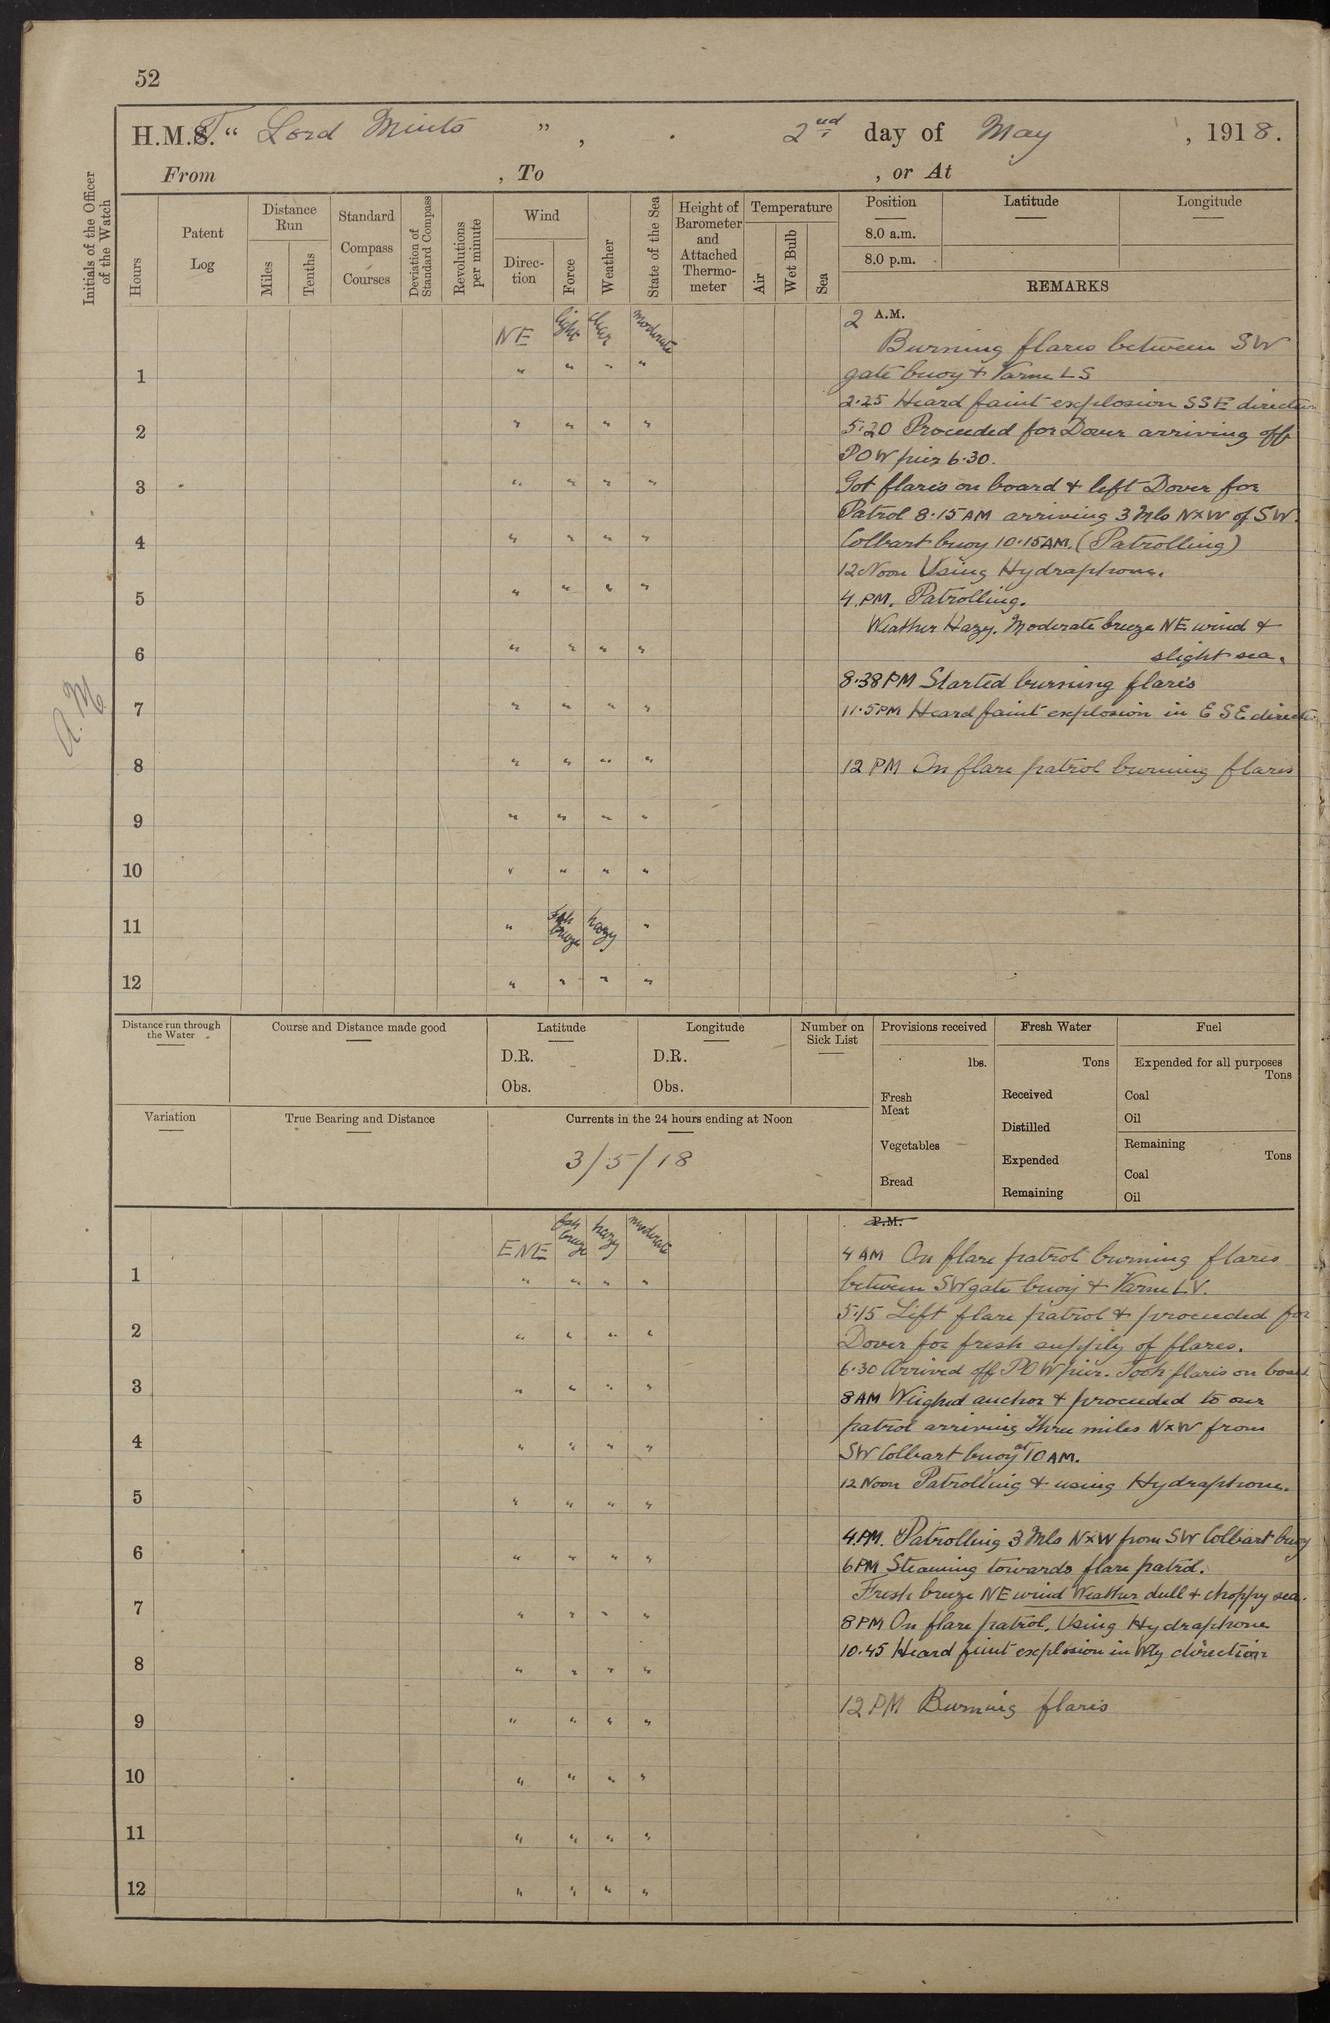 52
H.M.T. " Lord Minto ", 2nd day of May, 1918.
From , To , or At
Initials of the Officer of the Watch
Hours
Patent Log
Distance Run
Miles
Tenths
Standard Compass Courses
Deviation of Standard Compass
Revolutions per minute
Wind
Direction
Force
Weather
State of the Sea
Height of Barometer and Attached Thermometer
Temperature
Air
Wet Bulb
Sea
Position
8.0 a.m.
8.0 p.m.
Latitude
Longitude
REMARKS
NE light clear moderate
2 A.M.
Burning flares between SW
gate buoy & Varne LS
2.25 Heard faint explosion SSE direction
5.20 Proceeded for Dover arriving off
POW pier 6.30.
Got flares on board & left Dover for
Patrol 8.15 AM arriving 3 Mls NxW of SW.
Colbart buoy 10.15 AM. (Patrolling)
12 Noon Using Hydraphone.
4. PM. Patrolling.
Weather Hazy. Moderate breeze NE wind &
slight sea.
8.38 PM Started burning flares
11.5 PM Heard faint explosion in ESE directi
12 PM On flare patrol burning flares
A.M
1 " " " "
2 " " " "
3 " " " "
4 " " " "
5 " " " "
6 " " " "
7 " " " "
8 " " " "
9 " " " "
10 " " " "
11 " fresh breeze hazy "
12 " " " "
Distance run through the Water
Course and Distance made good
Latitude
D.R.
Obs.
Longitude
D.R.
Obs.
Number on Sick List
Provisions received
lbs.
Fresh Meat
Vegetables
Bread
Fresh Water
Tons
Received
Distilled
Expended
Remaining
Fuel
Expended for all purposes
Tons
Coal
Oil
Remaining
Tons
Coal
Oil
Variation
True Bearing and Distance
Currents in the 24 hours ending at Noon
3/5/18
ENE fresh breeze hazy moderate
P.M.
4 AM On flare patrol burning flares
between SW gate buoy & Varne LV.
5.15 Left flare patrol & proceeded for
Dover for fresh supply of flares.
6.30 Arrived off POW pier. Took flares on board
8 AM Weighed anchor & proceeded to our
patrol arriving three miles NxW from
SW Colbart buoy at 10 AM.
12 Noon Patrolling & using Hydraphone.
4. PM. Patrolling 3 Mls NxW from SW Colbart buoy
6 PM Steaming towards flare patrol.
Fresh breeze NE wind Weather dull & choppy sea.
8 PM On flare patrol. Using Hydraphone
10.45 Heard faint explosion in Wly direction
12 PM Burning flares
1 " " " "
2 " " " "
3 " " " "
4 " " " "
5 " " " "
6 " " " "
7 " " " "
8 " " " "
9 " " " "
10 " " " "
11 " " " "
12 " " " "